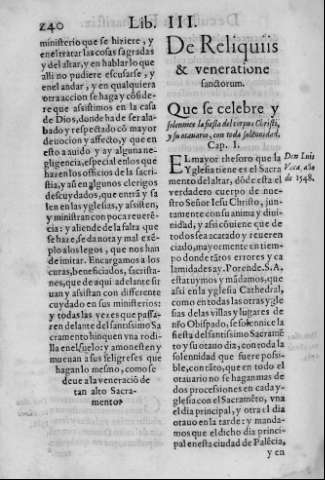 240
Lib. III.
ministerio que se hiziere, y
en el tratar las cosas sagradas
y del altar, y en hablar lo que
alli no pudiere escusarse, y
en el andar, y en qualquiera
otra accion se haga y cõside-
re que assistimos en la casa
de Dios, donde ha de ser ala-
bado y respectado cõ mayor
deuocion y affecto, y que en
esto a auido y ay alguna ne-
gligencia, especial en los que
hazen los officios de la sacri-
stia, y así en algunos clerigos
descuydados, que entrã y sa
len en las yglesias, y assisten,
y ministran con poca reuerẽ-
cia: y aliende de la falta que
se haze, se da nota y mal exẽ-
plo a los legos, que nos han
de imitar. Encargamos a los
curas, beneficiados, sacrista-
nes, que de aqui adelante sir
uan y assistan con differente
cuydado en sus ministerios:
y todas las veces que passa-
ren delante del santissimo Sa
cramento hinquen vna rodi-
lla en el suelo: y amonesten y
mueuan a sus feligreses que
hagan lo mesmo, como se
deue a la veneraciõ de
tan alto Sacra-
mento.
De Reliquiis
& veneratione
sanctorum.
Que se celebre y
solennice la fiesta del corpus Christi,
y su otauario, con toda solẽnidad.
Cap. I.
EL mayor thesoro que la
Yglesia tiene es el Sacra
mento del altar, dõde esta el
verdadero cuerpo de nue-
stro Señor Iesu Christo, jun-
tamente con su anima y diui-
nidad, y asi cõuiene que de
todos sea acatado y reueren
ciado, mayormente en tiem-
po donde tãtos errores y ca
lamidades ay. Porende. S. A.
estatuymos y mãdamos, que
assi en la yglesia Cathedral,
como en todas las otras ygle
sias de las villas y lugares de
nřo Obispado, se solenice la
fiesta del santissimo Sacramẽ
to y su otauo dia, con toda la
solennidad que fuere possi-
ble, con tãto, que en todo el
otauario no se hagan mas de
dos processiones en cada y-
glesia con el Sacramẽto, vna
el dia principal, y otra el dia
otauo en la tarde: y manda-
mos que el dicho dia princi-
pal en esta ciudad de Palẽcia,
y en
Don Luis
Vaca, año
de 1548.